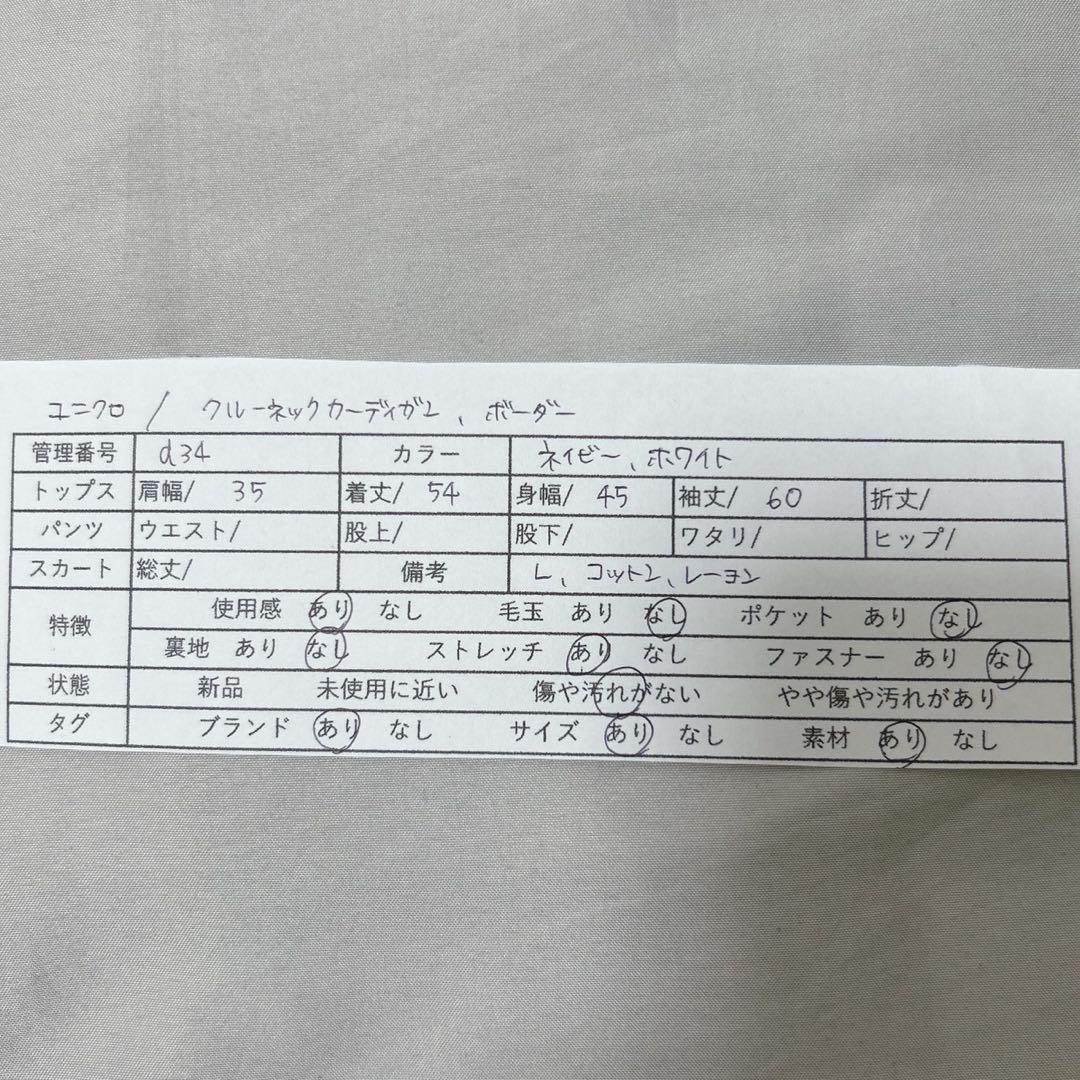 ユニクロ / クルーネックカーディガン、ボーダー
管理番号 d34 カラー ネイビー、ホワイト
トップス 肩幅/ 35 着丈/ 54 身幅/ 45 袖丈/ 60 折丈/
パンツ ウエスト/ 股上/ 股下/ ワタリ/ ヒップ/
スカート 総丈/ 備考 L、コットン、レーヨン
特徴 使用感 あり なし 毛玉 あり なし ポケット あり なし
裏地 あり なし ストレッチ あり なし ファスナー あり なし
状態 新品 未使用に近い 傷や汚れがない やや傷や汚れがあり
タグ ブランド あり なし サイズ あり なし 素材 あり なし